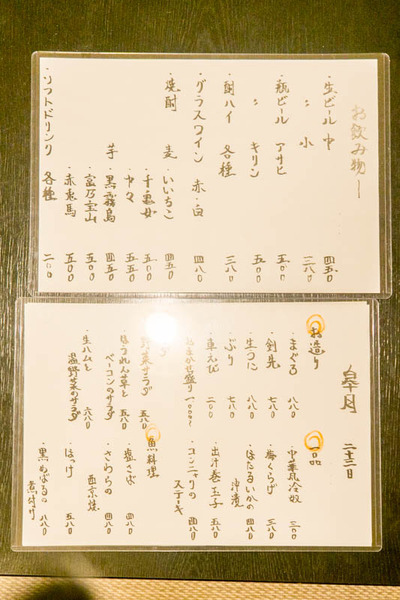 お飲み物
・生ビール 中 四五〇
〃 小 三八〇
・瓶ビール アサヒ 五五〇
〃 キリン 五〇〇
・酎ハイ 各種 三八〇
・グラスワイン 赤・白 四八〇
・焼酎 麦・いいちこ 四五〇
・千亀女 五五〇
・中々 五〇〇
芋・黒霧島 四五〇
・富乃宝山 五〇〇
・赤兎馬 五〇〇
・ソフトドリンク 各種 二〇〇
皐月 二十二日
お造り
・まぐろ 八八〇
・剣先 八八〇
・生うに
・ぶり 七八〇
・車えび 二〇〇
・おまかせ盛り 一〇〇〇〜
・野菜サラダ 五八〇
・ほうれん草と
ベーコンのサラダ 五八〇
・生ハムと
温野菜のサラダ 六八〇
一品
・中華風冷奴 三八〇
・梅くらげ 三八〇
・ほたるいかの
沖漬 四八〇
・出汁巻玉子 五八〇
・コンニャクの
ステーキ 四八〇
魚料理
・塩さば 四八〇
・さわらの
西京焼 四八〇
・ほっけ 五八〇
・黒めばるの
煮付け 八八〇